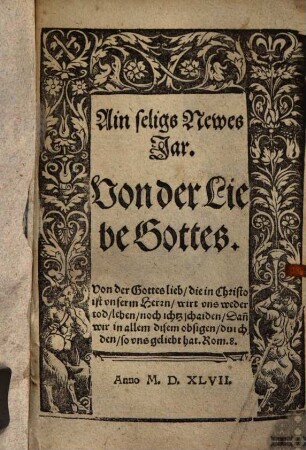 Ain seligs Newes
Jar.
Von der Lie
be Gottes.
Von der Gottes lieb / die in Christo
ist vnserm Herrn / wirt vns weder
tod / leben / noch ichtz schaiden / Dañ
wir in allem disem obsigen / durch
den / so vns geliebt hat. Rom. 8.
Anno M. D. XLVII.